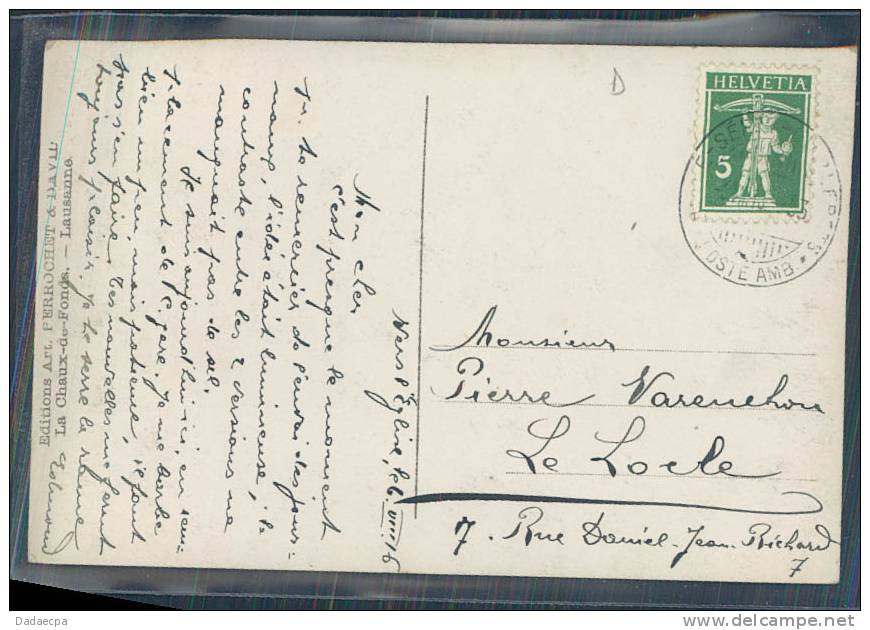 D
HELVETIA
5
POSTE AMB.
Monsieur
Pierre Varenchon
Le Locle
7. Rue Daniel-Jean Richard
7
Vers l'Eglise, le 6 VIII 16
Mon cher
c'est presque le moment
te remercier de l'envoi des jour-
naux, l'idée était lumineuse, le
contraste entre les 2 versions ne
manquait pas de sel.
Je suis aujourd'hui ici, en rem-
placement de c. gare. Je me barbe
bien un peu, mais patience, il faut
pas s'en faire. Tes nouvelles me feront
toujours plaisir. Je te serre la
Edmond
Editions Art. PERROCHET & DAVID
La Chaux-de-Fonds. — Lausanne.
Dadaecpa